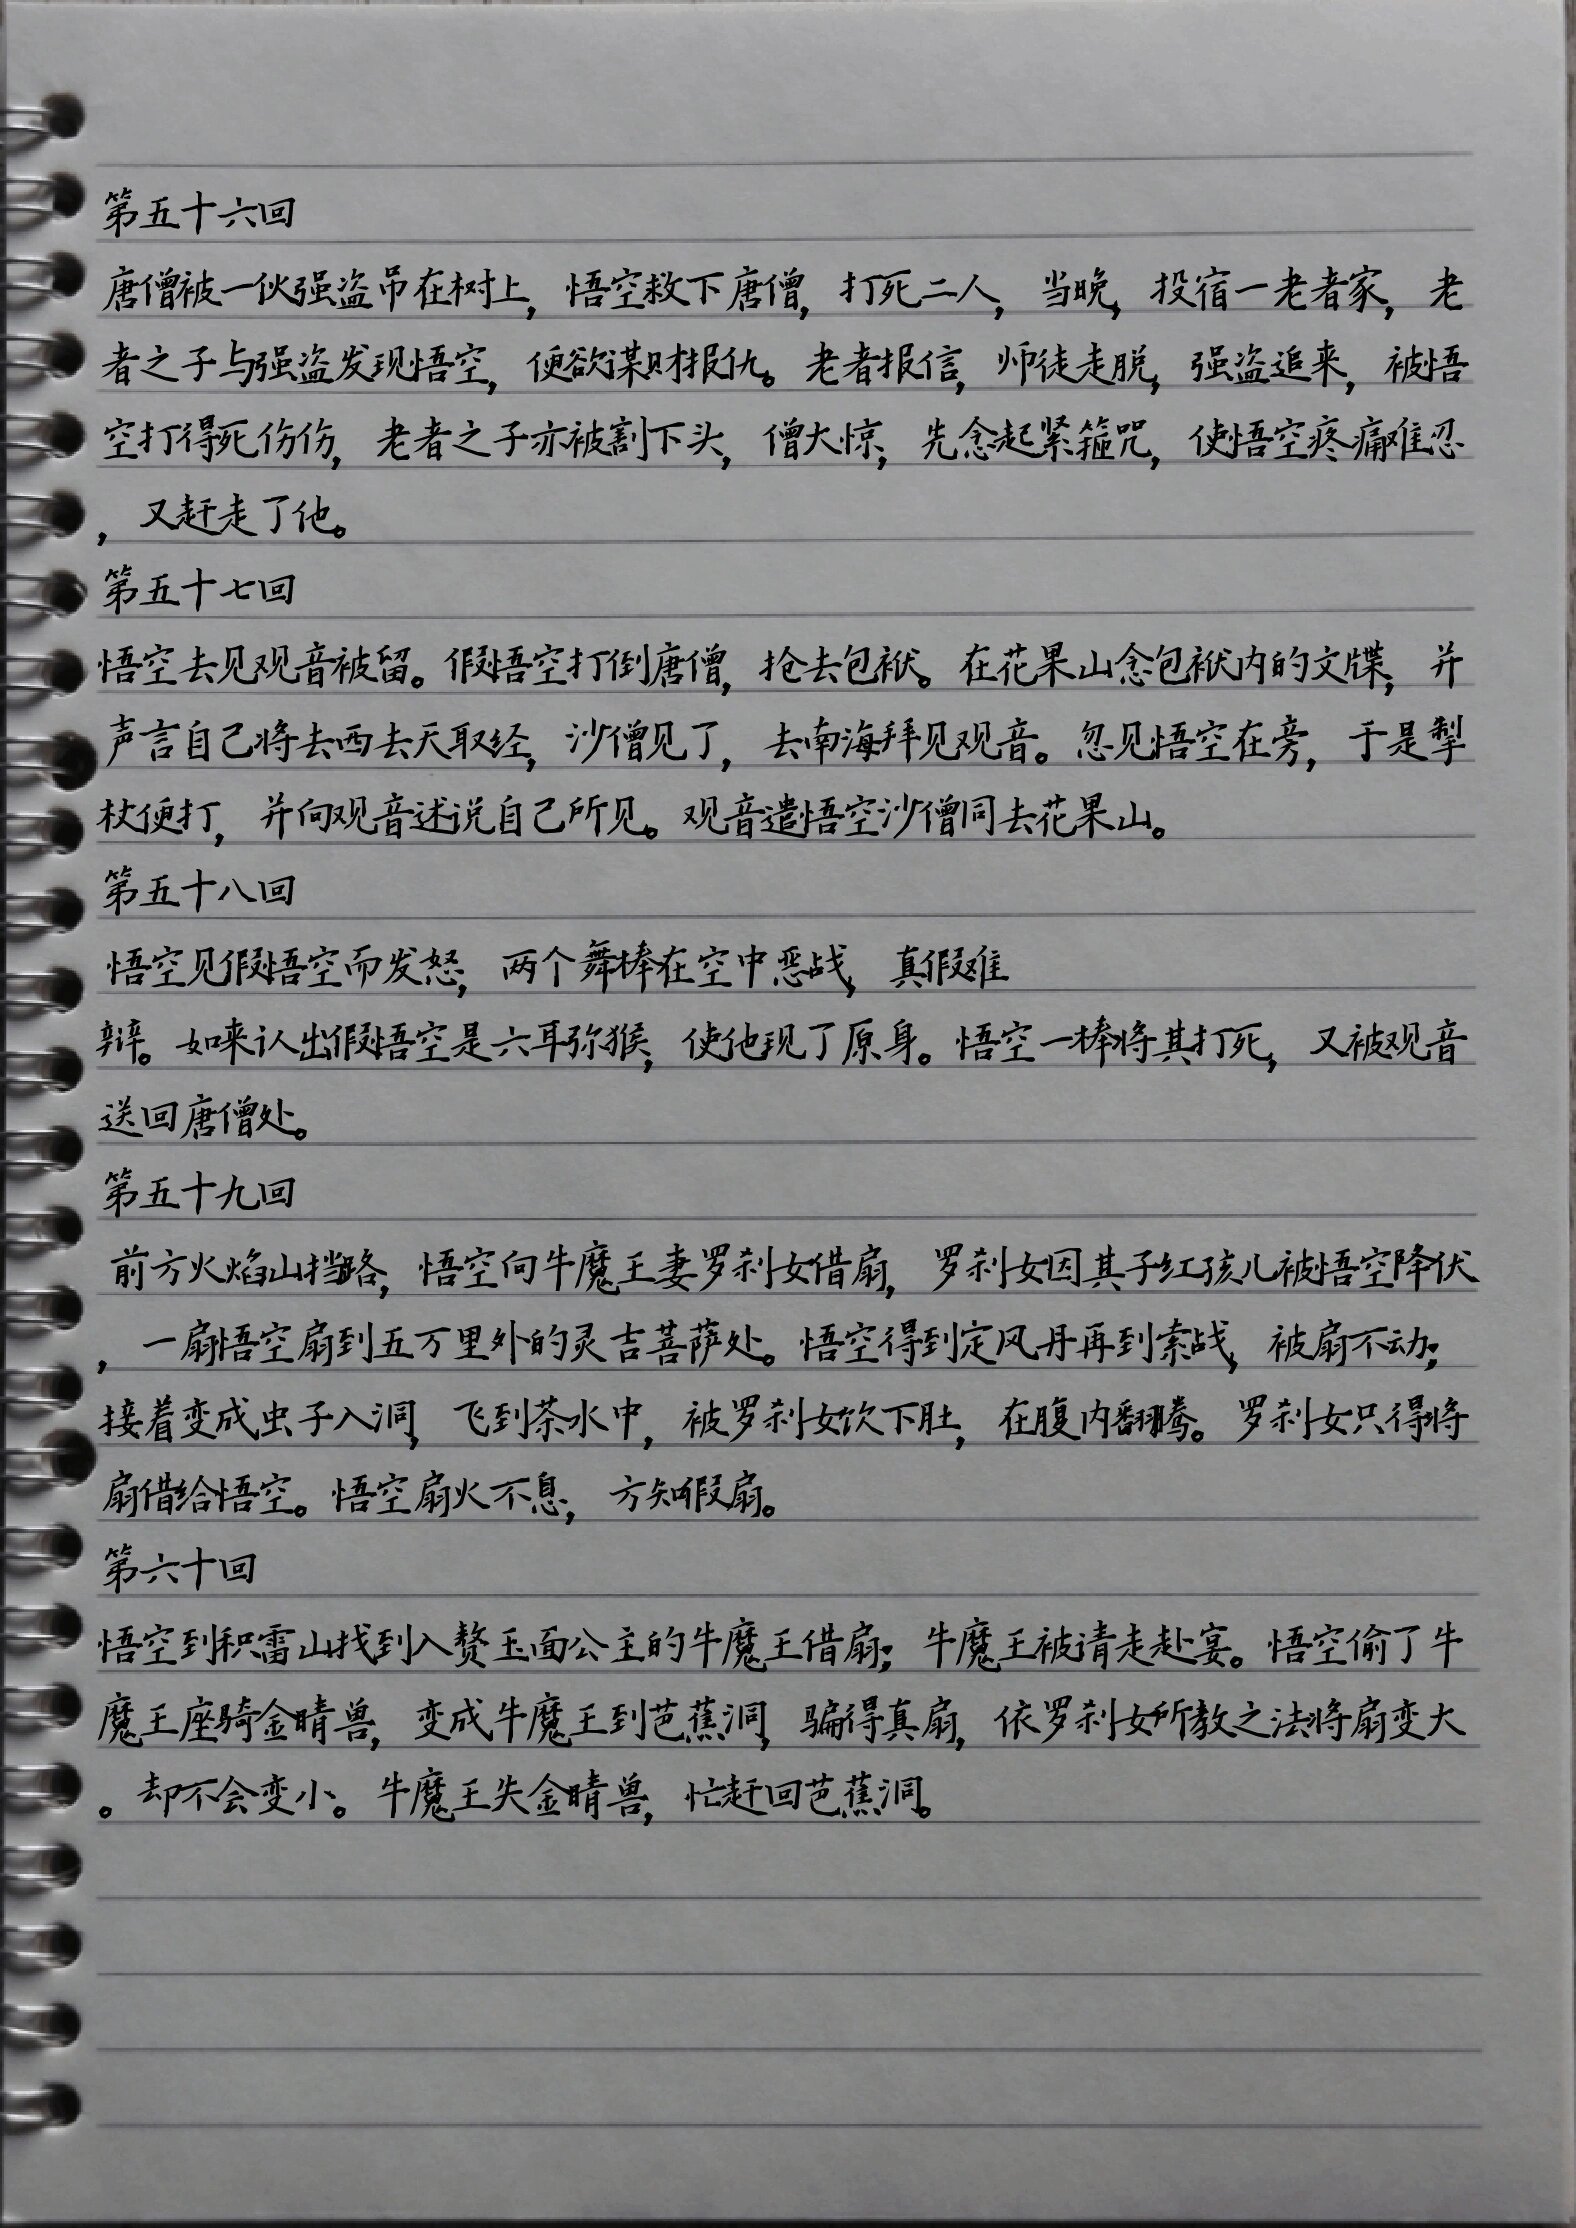 第五十六回
唐僧被一伙强盗吊在树上，悟空救下唐僧，打死二人，当晚，投宿一老者家，老
者之子与强盗发现悟空，便欲谋财报仇。老者报信，师徒走脱，强盗追来，被悟
空打得死伤伤，老者之子亦被割下头，僧大惊，先念起紧箍咒，使悟空疼痛难忍
，又赶走了他。
第五十七回
悟空去见观音被留。假悟空打倒唐僧，抢去包袱。在花果山念包袱内的文牒，并
声言自己将去西去天取经，沙僧见了，去南海拜见观音。忽见悟空在旁，于是掣
杖便打，并向观音述说自己所见。观音遣悟空沙僧同去花果山。
第五十八回
悟空见假悟空而发怒，两个舞棒在空中恶战，真假难
辩。如来认出假悟空是六耳弥猴，使他现了原身。悟空一棒将其打死，又被观音
送回唐僧处。
第五十九回
前方火焰山挡路，悟空向牛魔王妻罗刹女借扇，罗刹女因其子红孩儿被悟空降伏
，一扇悟空扇到五万里外的灵吉菩萨处。悟空得到定风丹再到索战，被扇不动；
接着变成虫子入洞，飞到茶水中，被罗刹女饮下肚，在腹内翻腾。罗刹女只得将
扇借给悟空。悟空扇火不息，方知假扇。
第六十回
悟空到积雷山找到入赘玉面公主的牛魔王借扇；牛魔王被请走赴宴。悟空偷了牛
魔王座骑金睛兽，变成牛魔王到芭蕉洞，骗得真扇，依罗刹女所教之法将扇变大
。却不会变小。牛魔王失金睛兽，忙赶回芭蕉洞。